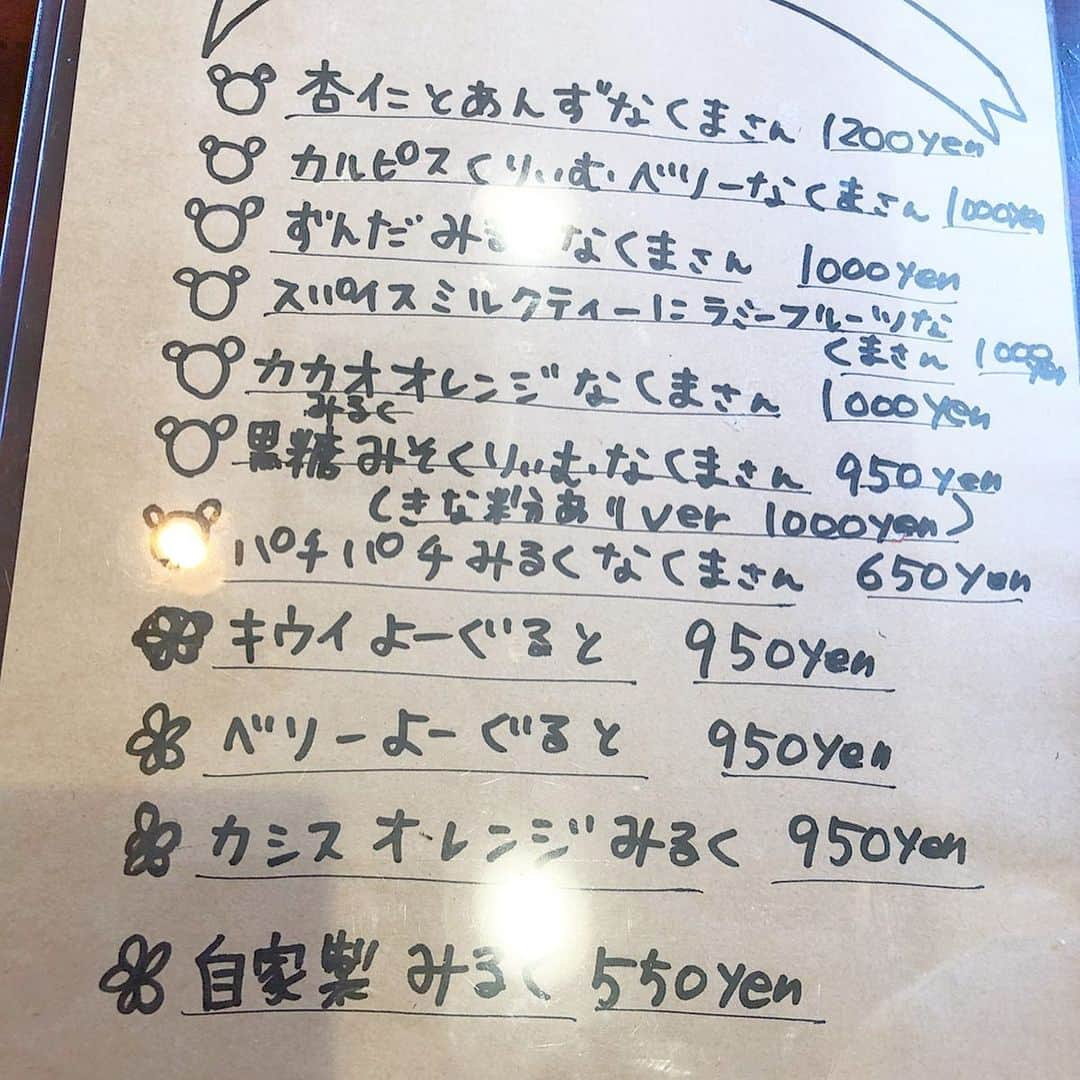 杏仁とあんずなくまさん 1200yen
カルピスくりぃむベリーなくまさん 1000yen
ずんだみる なくまさん 1000yen
スパイスミルクティーにラミーフルーツな
くまさん 1000yen
カカオオレンジなくまさん 1000yen
みるく
黒糖みそくりぃむなくまさん 950yen
(きな粉ありver 1000yen)
パチパチみるくなくまさん 650yen
キウイよーぐると 950yen
ベリーよーぐると 950yen
カシスオレンジみるく 950yen
自家製みるく 550yen